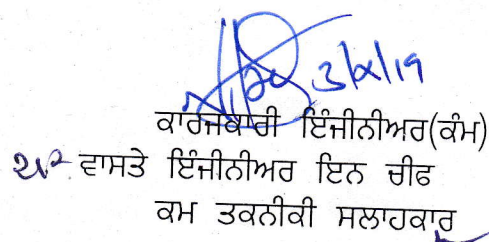 3/10/19
ਕਾਰਜਕਾਰੀ ਇੰਜੀਨੀਅਰ(ਕੰਮ)
ਵਾਸਤੇ ਇੰਜੀਨੀਅਰ ਇਨ ਚੀਫ
ਕਮ ਤਕਨੀਕੀ ਸਲਾਹਕਾਰ